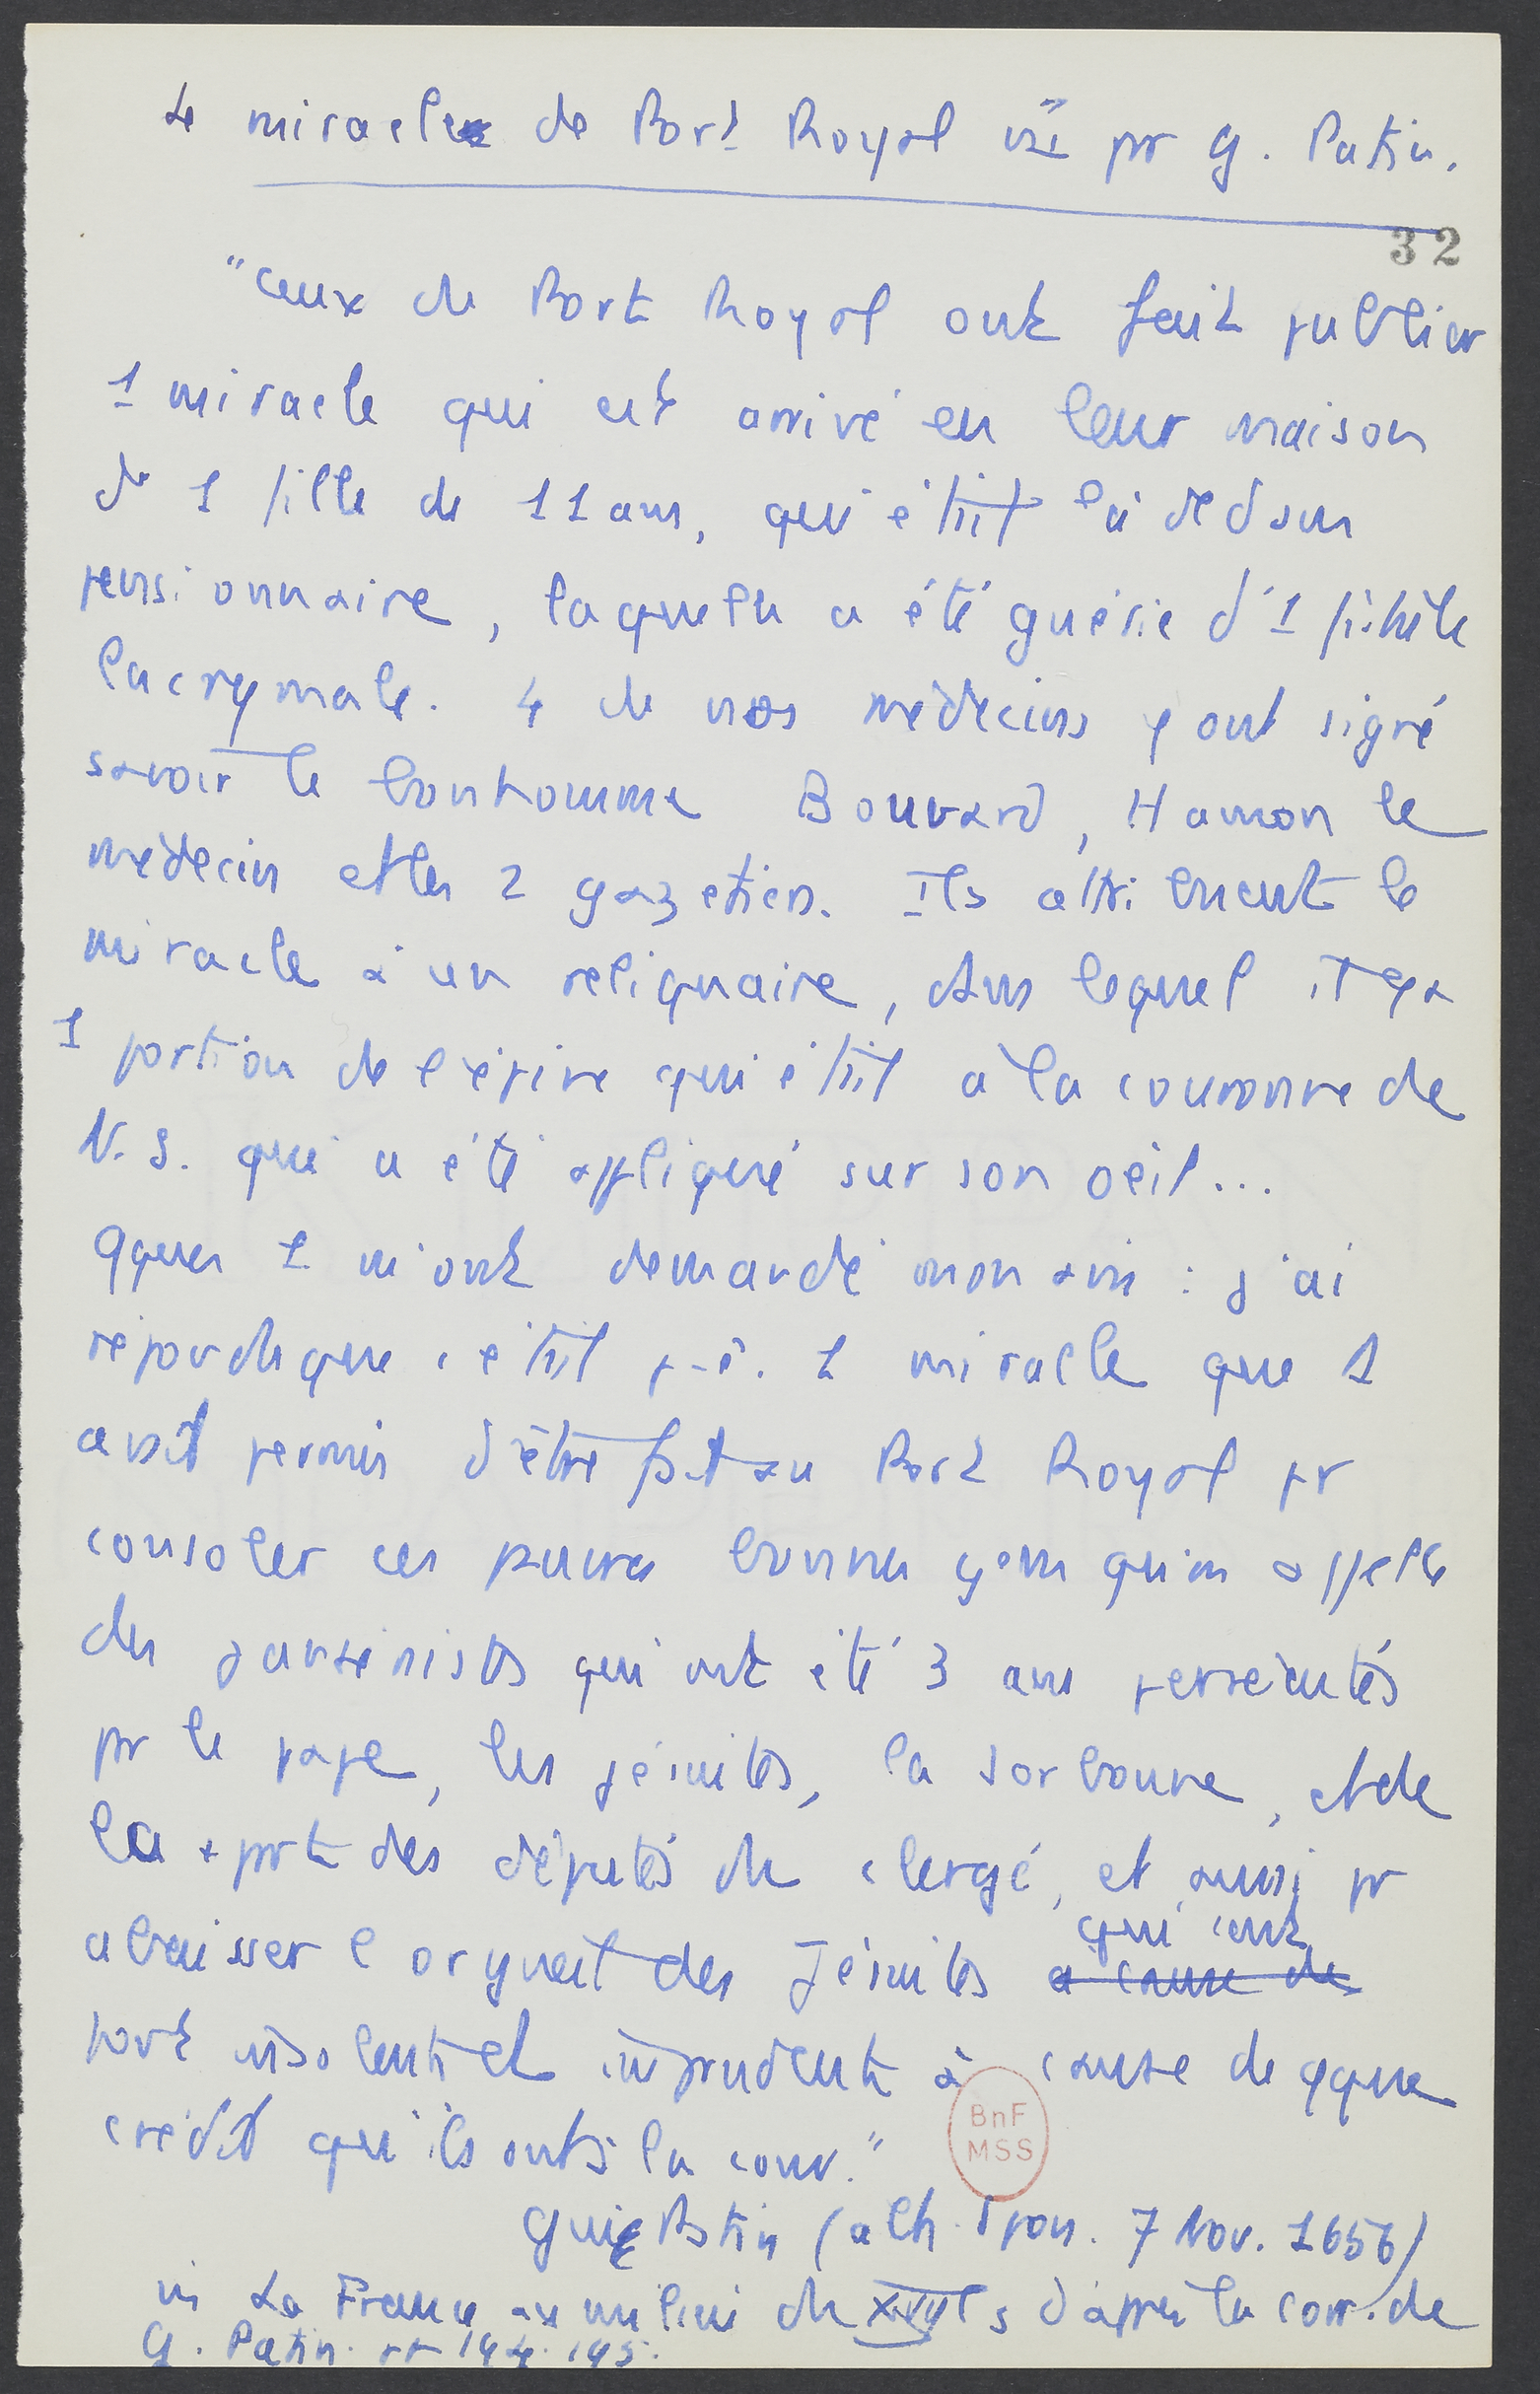 Le miracle de Port Royal vu pr G. Patin.
32
"Ceux de Port Royal ont fait publier
1 miracle qui est arrivé en leur maison
de 1 fille de 11 ans, qui était là dedans
pensionnaire, laquelle a été guérie d'1 fistule
lacrymale. 4 de nos médecins y ont signé
savoir le bonhomme Bouvard, Hamon le
médecin et les 2 gazetiers. Ils attribuent le
miracle à un reliquaire, dans lequel il y a
1 portion de l'épine qui était à la couronne de
N. S. qui a été appliqué sur son oeil...
Qques 1 m'ont demandé mon avis : j'ai
répondu que c'était p-ê. 1 miracle que
avait permis d'être fait au Port Royal pr
consoler ces pauvres bonnes gens qu'on appelle
des jansénistes qui ont été 3 ans persécutés
pr le pape, les jésuites, la Sorbonne, et de
la + part des députés du clergé, et aussi pr
abaisser l'orgueil des Jésuites a cause de
qui sont
fort insolents et imprudents à cause de qque
crédit qu'ils ont à la cour."
BnF
MSS
Gui Patin (à Ch. Spon. 7 Nov. 1656)
in La France au milieu du XVII s d'après la corr. de
G. Patin. pp 144. 145.